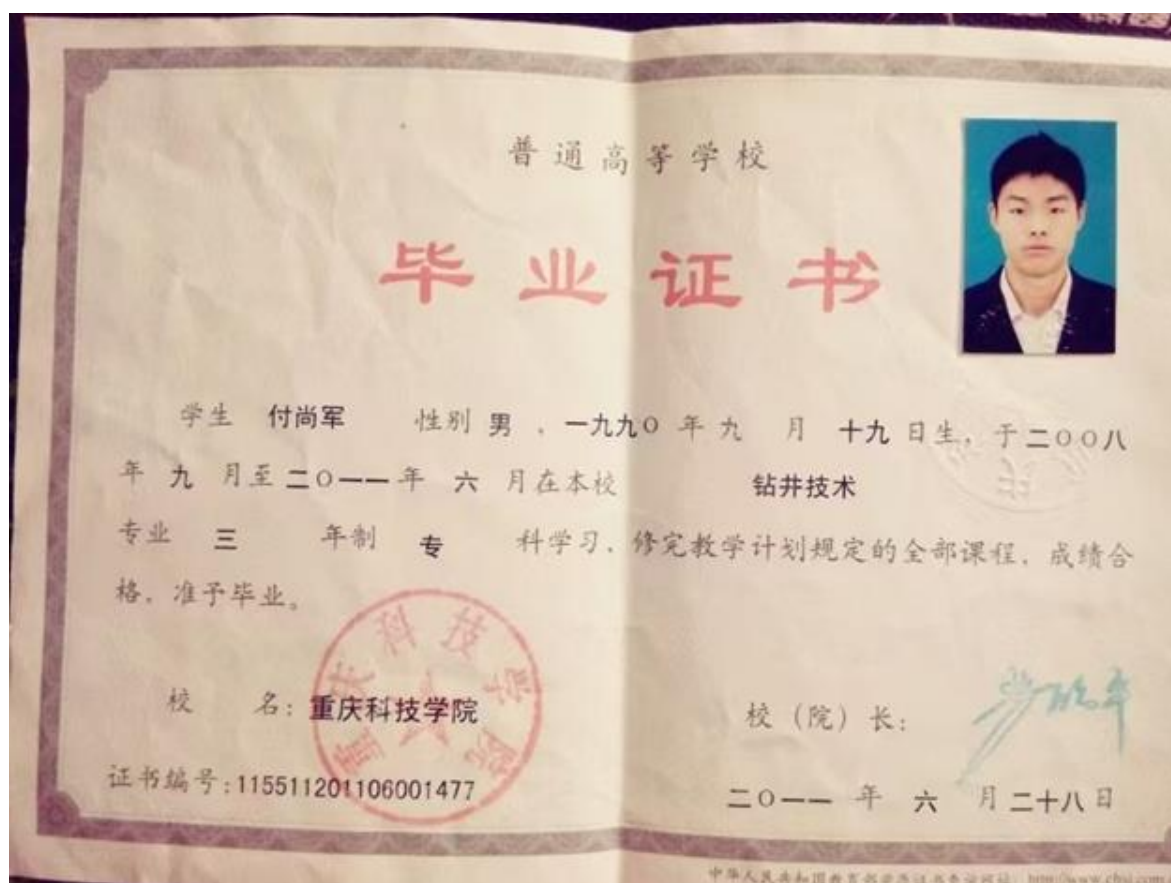 普通高等学校
毕业证书
学生 付尚军 性别 男 ，一九九〇 年 九 月 十九 日生，于二〇〇八
年 九 月至 二〇一一 年 六 月在本校 钻井技术
专业 三 年制 专 科学习，修完教学计划规定的全部课程，成绩合
格，准予毕业。
重庆科技学院
校 名：重庆科技学院
校（院）长：
证书编号：115511201106001477
二〇一一 年 六 月 二十八 日
中华人民共和国教育部学历证书查询网址：http://www.chsi.com.c